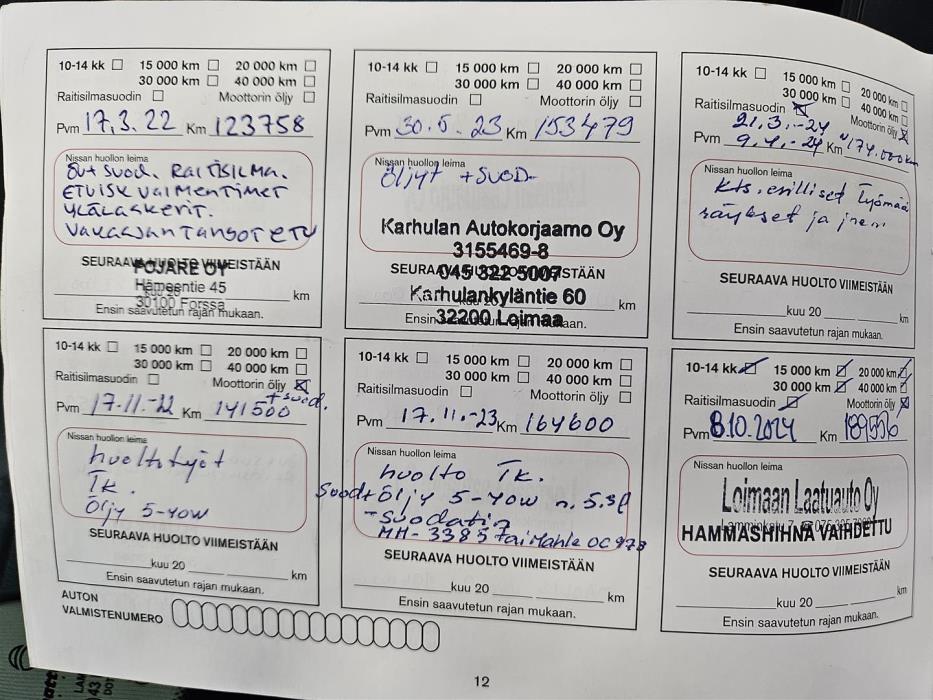 10-14 kk 15 000 km 20 000 km
30 000 km 40 000 km
Raitisilmasuodin Moottorin öljy
Pvm 17.3.22 Km 123758
Nissan huollon leima
Öljy+suod. RAITISILMA.
ETUISKUNVAIMENTIMET
YLÄLASKERIT.
VAKAAJANTANGOT ETU
SEURAAVA HUOLTO VIIMEISTÄÄN
POJARE OY
Hämeentie 45
30100 Forssa
km
Ensin saavutetun rajan mukaan.
10-14 kk 15 000 km 20 000 km
30 000 km 40 000 km
Raitisilmasuodin Moottorin öljy
Pvm 30.5.23 Km 153479
Nissan huollon leima
Öljyt +SUOD-
Karhulan Autokorjaamo Oy
3155469-8
SEURAAVA HUOLTO VIIMEISTÄÄN
045 322 5007
kuu 20 km
Karhulankyläntie 60
Ensin saavutetun rajan mukaan.
32200 Loimaa
10-14 kk 15 000 km 20 000 km
30 000 km 40 000 km
Raitisilmasuodin Moottorin öljy
21.3.-24
Pvm 9.4.-24 Km ~174.000km
Nissan huollon leima
kts. erilliset Työmää
räykset ja
SEURAAVA HUOLTO VIIMEISTÄÄN
kuu 20 km
Ensin saavutetun rajan mukaan.
10-14 kk 15 000 km 20 000 km
30 000 km 40 000 km
Raitisilmasuodin Moottorin öljy
+suod.
Pvm 17.11.-22 Km 141500
Nissan huollon leima
huoltotyöt
TK.
Öljy 5-40W
SEURAAVA HUOLTO VIIMEISTÄÄN
kuu 20 km
Ensin saavutetun rajan mukaan.
10-14 kk 15 000 km 20 000 km
30 000 km 40 000 km
Raitisilmasuodin Moottorin öljy
Pvm 17.11.-23 Km 164600
Nissan huollon leima
huolto TK.
Suod+Öljy 5-40W n. 5.5l
-Suodatin
MH-3385 tai Mahle OC978
SEURAAVA HUOLTO VIIMEISTÄÄN
kuu 20 km
Ensin saavutetun rajan mukaan.
10-14 kk 15 000 km 20 000 km
30 000 km 40 000 km
Raitisilmasuodin Moottorin öljy
Pvm 8.10.2024 Km 189556
Nissan huollon leima
Loimaan Laatuauto Oy
HAMMASHIHNA VAIHDETTU
SEURAAVA HUOLTO VIIMEISTÄÄN
kuu 20 km
Ensin saavutetun rajan mukaan.
AUTON
VALMISTENUMERO
12